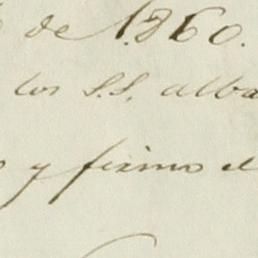 de 1860.
los S.S. alba
y firmo el